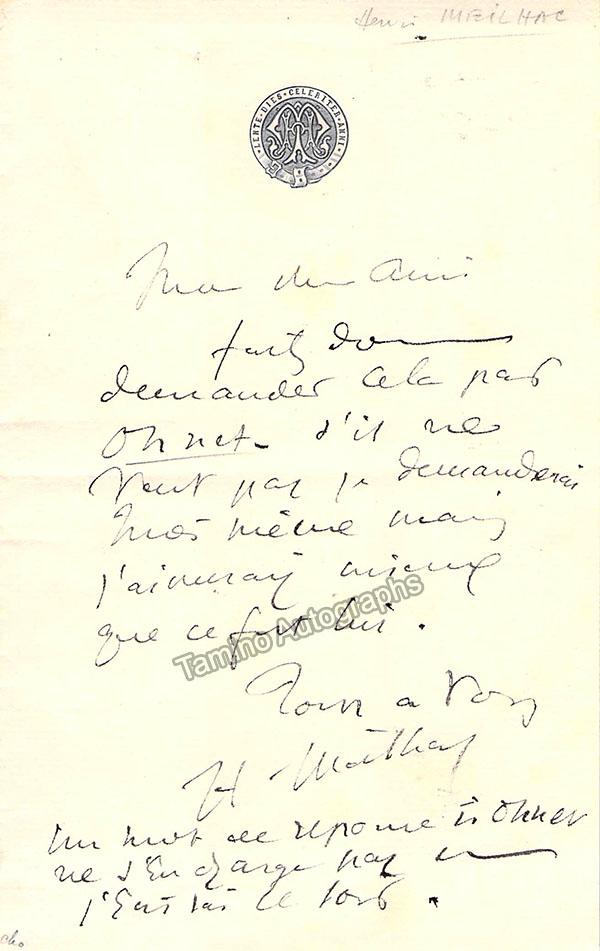 Henri MEILHAC
LENTE · DIES · CELERITER · ANNI
Mon cher Ami
faites donc
demander cela par
Ohnet. s'il ne
veut pas je demanderai
moi même mais
j'aimerais mieux
que ce fut lui.
Tamino Autographs
Tout à vous
H Meilhac
Un mot de réponse si Ohnet
ne s'en charge pas
j'écrirai ce soir.